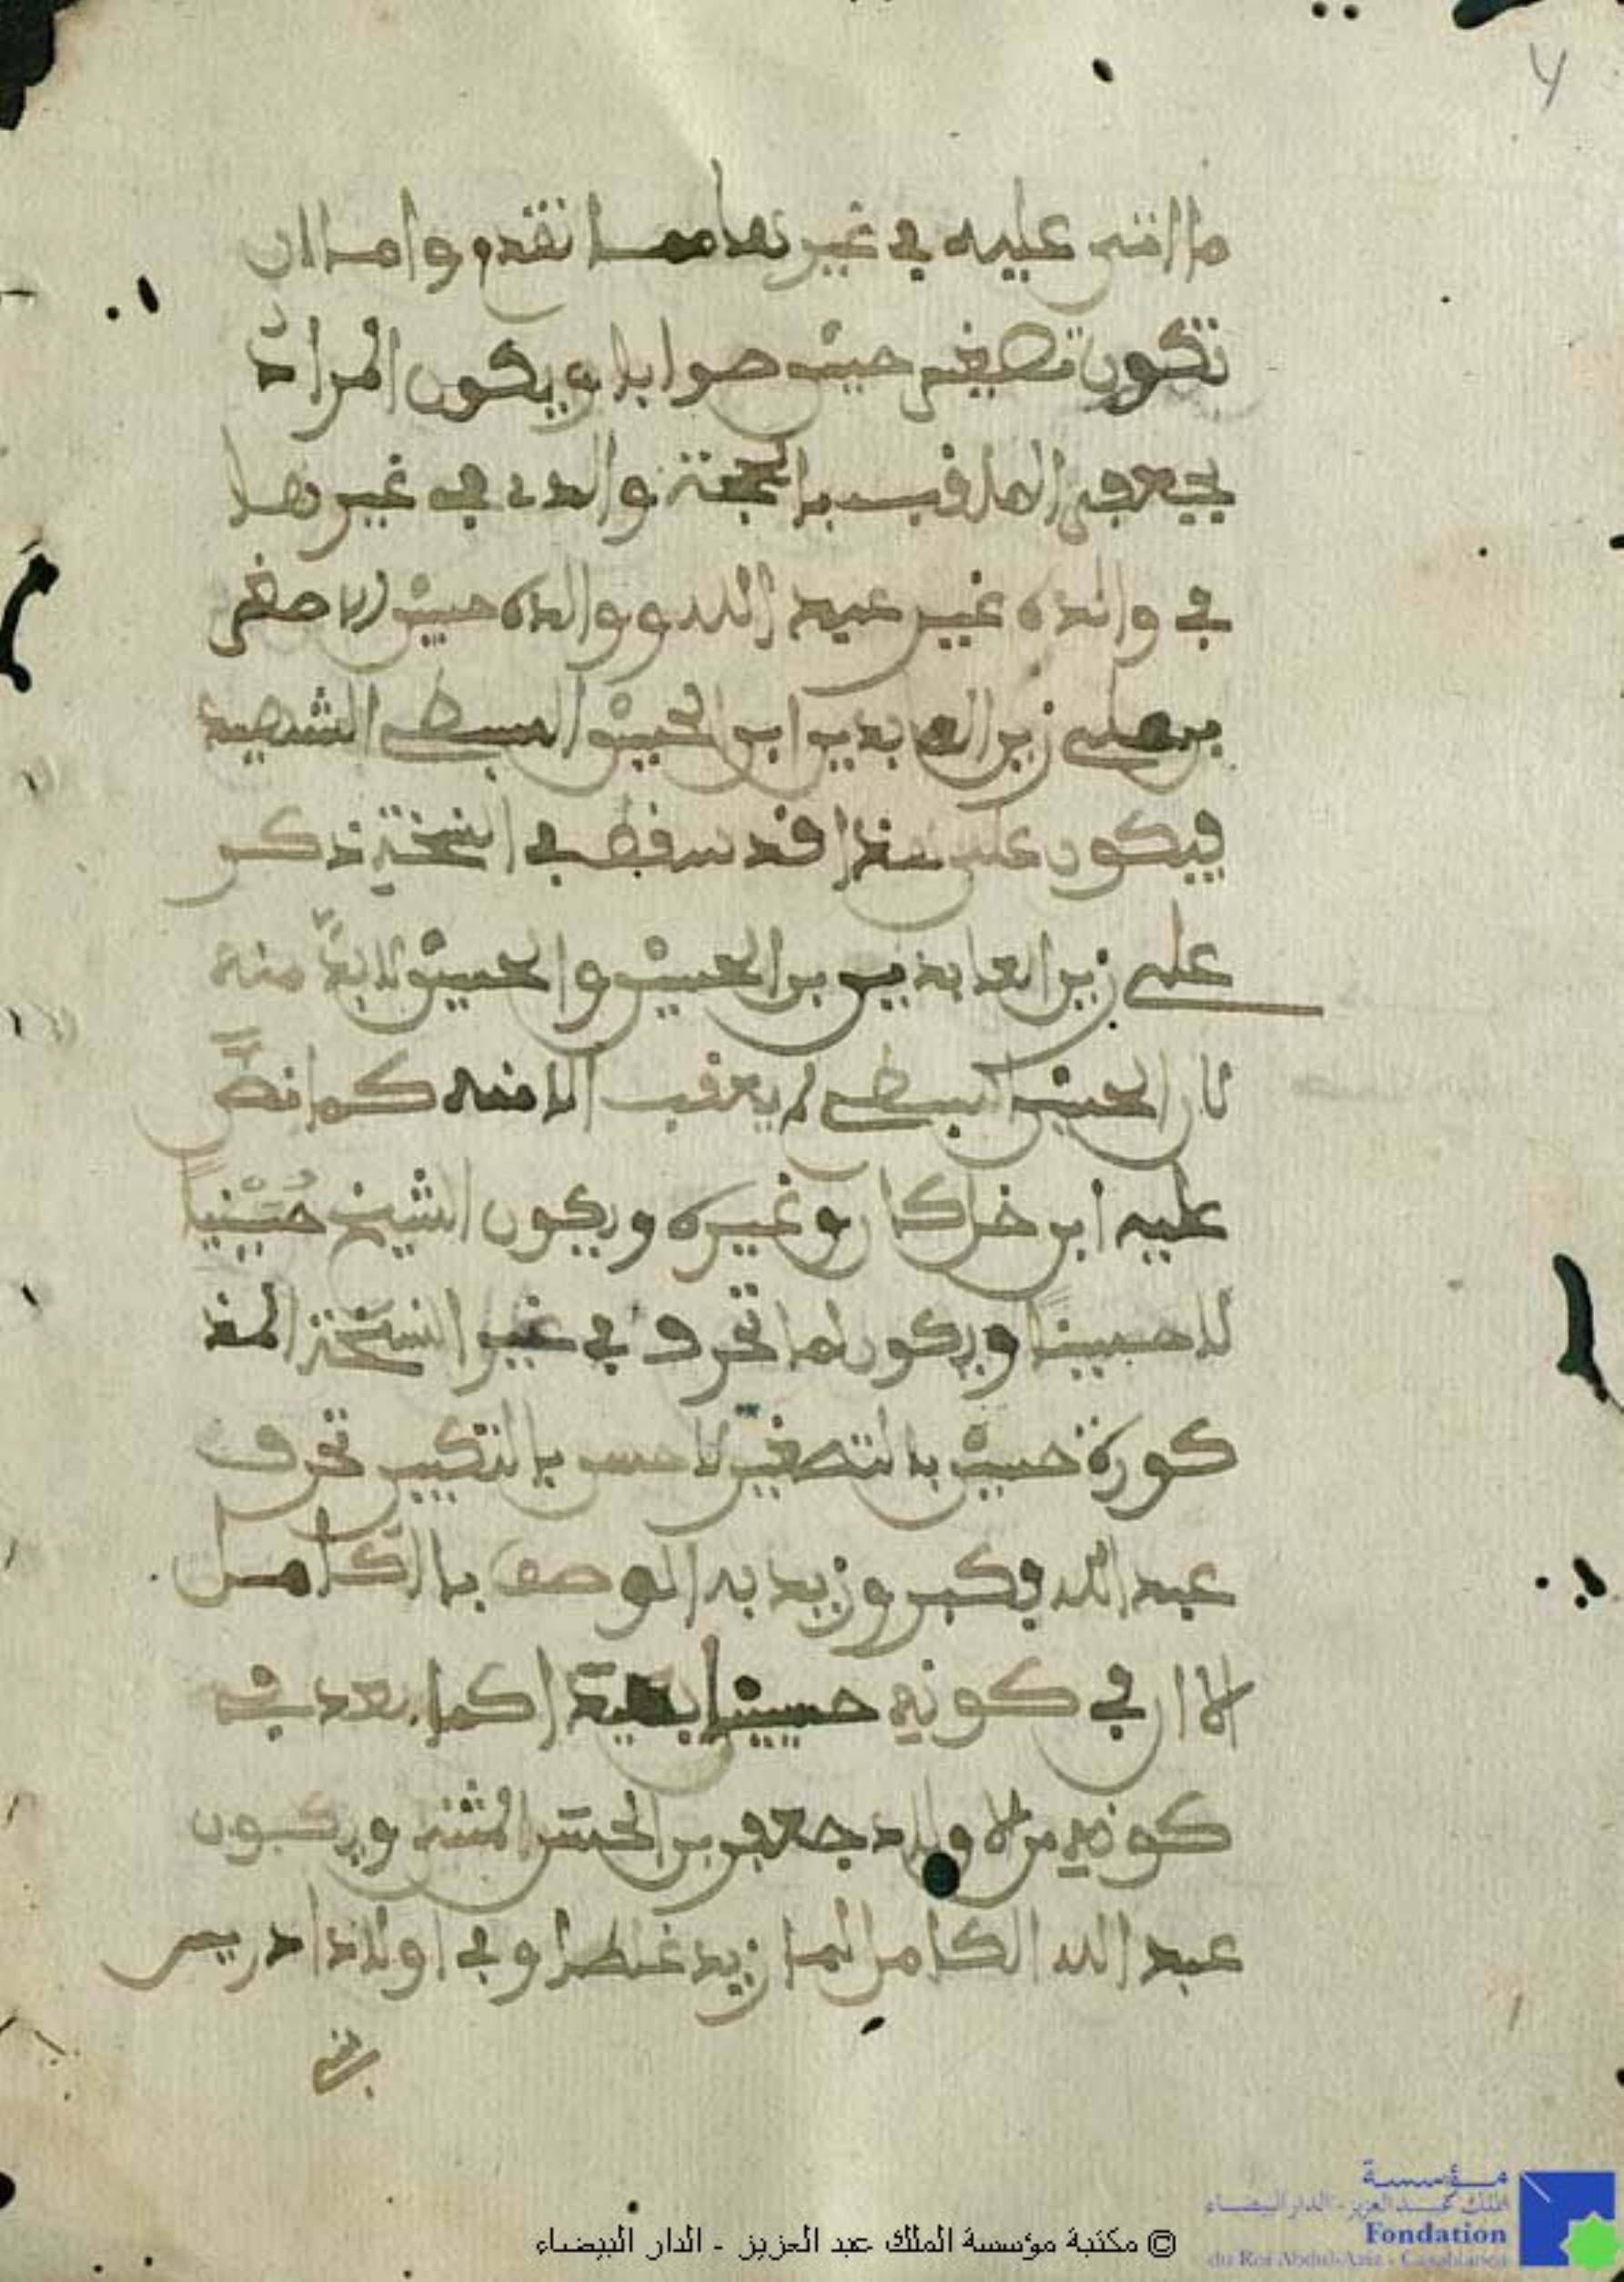 ما اتفق عليه في غيرها مما تقدم واما ان
تكون تصغير حسين صوابا ويكون المراد
بجعفر الملقب بالحجة والد في غيرها
في والده غير عبيد الله ووالده حسين الاصغر
بن علي زين العابدين ابن الحسين السبط الشهيد
فيكون على هذا قد سقط في النسخة ذكر
علي زين العابدين بن الحسين والحسين لا بد منه
لان الحسين السبط لم يعقب الا منه كما نص
عليه ابن خلكان وغيره ويكون الشيخ حسينيا
لا حسنيا ويكون لما تحرف في غير النسخة المذ
كورة حسين بالتصغير لا حسن بالتكبير تحرف
عبد الله فكبر وزيد به الوصف بالكامل
الا ان في كونه حسينيا بعدا كما بعد في
كونه من اولاد جعفر بن الحسن المثنى ويكون
عبد الله الكامل انما زيد غلطا وفي اولاد ادريس
بن
٧
© مكتبة مؤسسة الملك عبد العزيز - الدار البيضاء
مؤسسة
الملك عبد العزيز - الدار البيضاء
Fondation
du Roi Abdul-Aziz - Casablanca